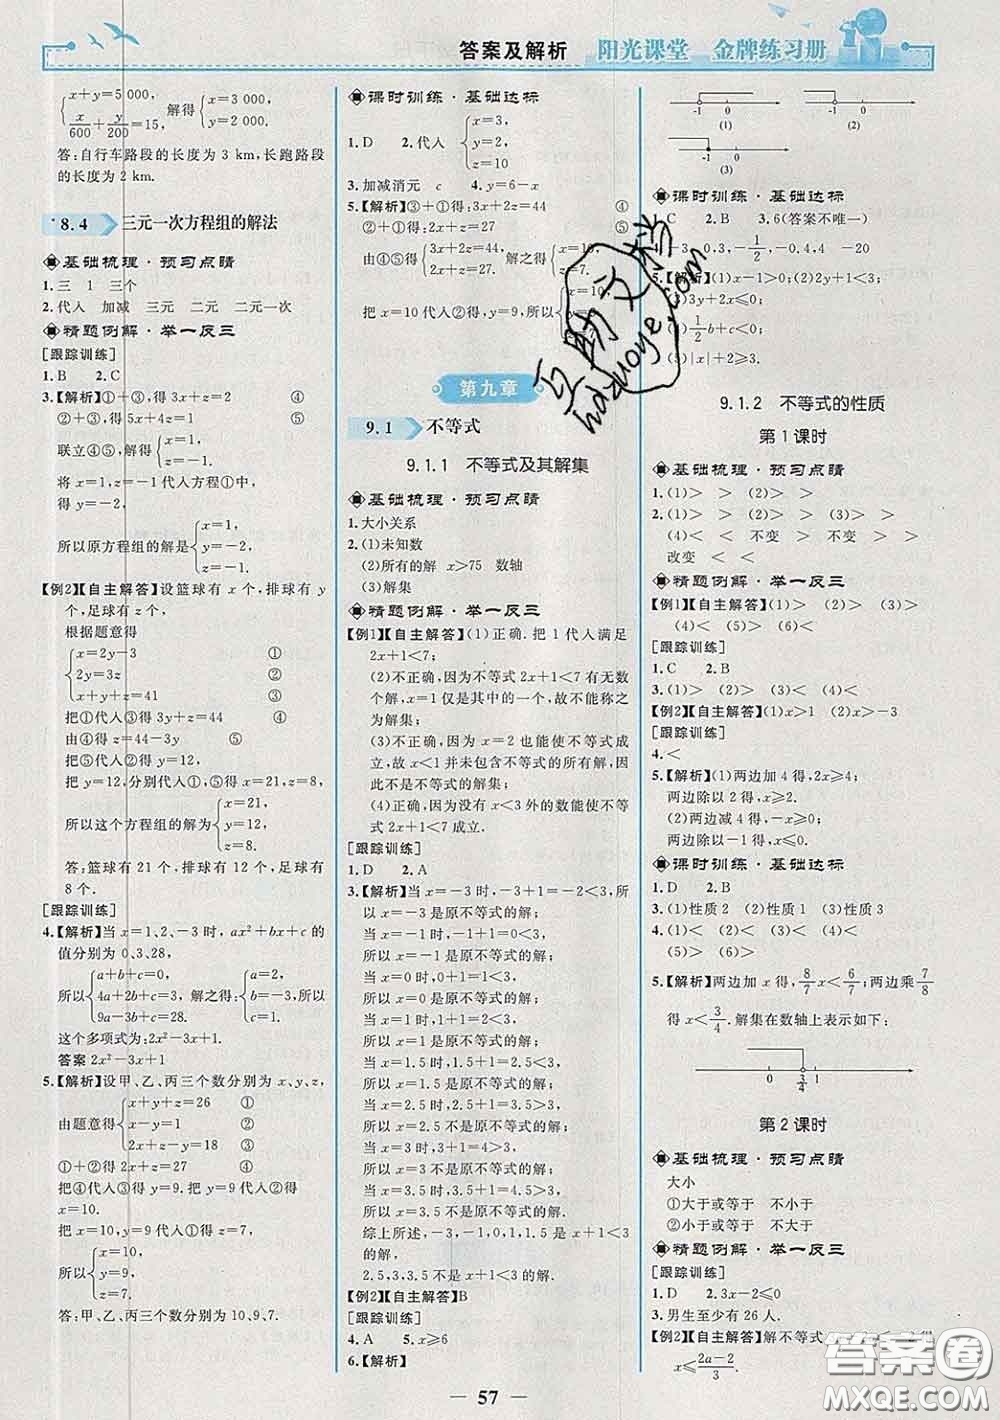 答案及解析
阳光课堂 金牌练习册
{x+y=5 000,
x/600+y/200=15, 解得{x=3 000,
y=2 000.
答:自行车路段的长度为 3 km,长跑路段
的长度为 2 km.
8.4 三元一次方程组的解法
基础梳理·预习点睛
1.三 1 三个
2.代人 加减 三元 二元 二元一次
精题例解·举一反三
[跟踪训练]
1.B 2.C
3.【解析】①+③得:3x+z=2 ④
②+③,得:5x+4z=1 ⑤
联立④⑤,解得{x=1,
z=-1.
将 x=1,z=-1代入方程①中,
得:y=-2.
所以原方程组的解是{x=1,
y=-2,
z=-1.
【例2】【自主解答】设篮球有 x 个,排球有 y
个,足球有 z 个,
根据题意得
{x=2y-3 ①
2y=3z ②
x+y+z=41 ③
把①代人③得 3y+z=44 ④
由④得 z=44-3y ⑤
把⑤代人②得 y=12,
把 y=12,分别代人①,⑤得 x=21,z=8,
所以这个方程组的解为{x=21,
y=12,
z=8.
答:篮球有 21 个,排球有 12 个,足球有
8 个.
[跟踪训练]
4.【解析】当 x=1、2、-3 时,ax²+bx+c 的
值分别为 0、3、28,
所以{a+b+c=0,
4a+2b+c=3,
9a-3b+c=28.
解之得:{a=2,
b=-3,
c=1.
这个多项式为:2x²-3x+1.
答案 2x²-3x+1
5.【解析】设甲、乙、丙三个数分别为 x、y、z,
由题意得{x+y+z=26 ①
x-y=1 ②
2x+z-y=18 ③
①+②得 2x+z=27 ④
把④代人③得 y=9,把 y=9 代人②得
x=10.
把 x=10,y=9 代人①得 z=7,
所以{x=10,
y=9,
z=7.
答:甲、乙、丙三个数分别为10、9、7.
课时训练·基础达标
1.D 2.代人 {x=3,
y=2,
z=10
3.加减消元 c 4.y=6-x
5.【解析】③+①得:3x+2z=44 ④
②+①得:2x+2z=27 ⑤
由④⑤得{3x+2z=44
2x+2z=27. 解之得{x=10.
把 x=10代人②得,y=9,所以{x=10,
第九章
9.1 不等式
9.1.1 不等式及其解集
基础梳理·预习点睛
1.大小关系
2.(1)未知数
(2)所有的解 x>75 数轴
(3)解集
精题例解·举一反三
【例1】【自主解答】(1)正确.把 1 代人满足
2x+1<7;
(2)不正确,因为不等式 2x+1<7 有无数
个解,x=1 仅是其中的一个,故不能称之
为解集;
(3)不正确,因为 x=2 也能使不等式成
立,故 x<1 并未包含不等式的所有解,因
此不是不等式的解集;
(4)正确,因为没有 x<3 外的数能使不等
式 2x+1<7 成立.
[跟踪训练]
1.D 2.A
3.【解析】当 x=-3 时,-3+1=-2<3,所
以 x=-3 是原不等式的解;
当 x=-1 时,-1+1=0<3,所
以 x=-1 是原不等式的解;
当 x=0 时,0+1=1<3,所
以 x=0 是原不等式的解;
当 x=1 时,1+1=2<3,所
以 x=1 是原不等式的解;
当 x=1.5 时,1.5+1=2.5<3,所
以 x=1.5 是原不等式的解;
当 x=2.5 时,2.5+1=3.5>3,所
以 x=2.5 不是原不等式的解;
当 x=3 时,3+1=4>3,所
以 x=3 不是原不等式的解;
当 x=3.5 时,3.5+1=4.5>3,所
以 x=3.5 不是原不等式的解.
综上所述,-3,-1,0,1,1.5 是 x+1<3
的解.
2.5,3,3.5 不是 x+1<3 的解.
【例2】【自主解答】B
[跟踪训练]
4.A 5.x⩾6
6.【解析】
-1 0
(1)
-1 0
(2)
-1 0
(3)
课时训练·基础达标
C 2.B 3.6(答案不唯一)
0.3,-1/2,-0.4,4 -20
5.【解析】(1)x-1>0;(2)2y+1<3;
(3)3y+2x⩽0;
1/2b+c<0;
(5)|x|+2⩾3.
9.1.2 不等式的性质
第 1 课时
基础梳理·预习点睛
1.(1)> > (2)> >
2.(1)> > (2)> > (3)> >
(4)< < 不变 > > 不变 < <
改变 < <
精题例解·举一反三
【例1】【自主解答】(1)> (2)> (3)>
(4)< (5)< (6)<
[跟踪训练]
1.C 2.B
3.(1)> (2)> (3)< (4)<
【例2】【自主解答】(1)x>1 (2)x>-3
[跟踪训练]
4.<
5.【解析】(1)两边加 4 得,2x⩾4;
两边除以 2 得,x⩾2.
(2)两边减 4 得,-x⩾0;
两边除以-1 得,x⩽0.
课时训练·基础达标
1.D 2.B
3.(1)性质 2 (2)性质 1
4.(1)< (2)< (3)> (4)<
(5)> (6)>
5.【解析】两边加 x 得,8/7x<6/7;两边乘7/8
得 x<3/4.解集在数轴上表示如下:
0 3/4 1
第 2 课时
基础梳理·预习点睛
大小
①大于或等于 不小于
②小于或等于 不大于
精题例解·举一反三
[跟踪训练]
1.D 2.3x-2⩽0
3.男生至少有 26 人.
【例2】【自主解答】解不等式
得
x⩽(2a-2)/3.
57
互助文档
hdzuoye.com
答案圈
MXQE.COM